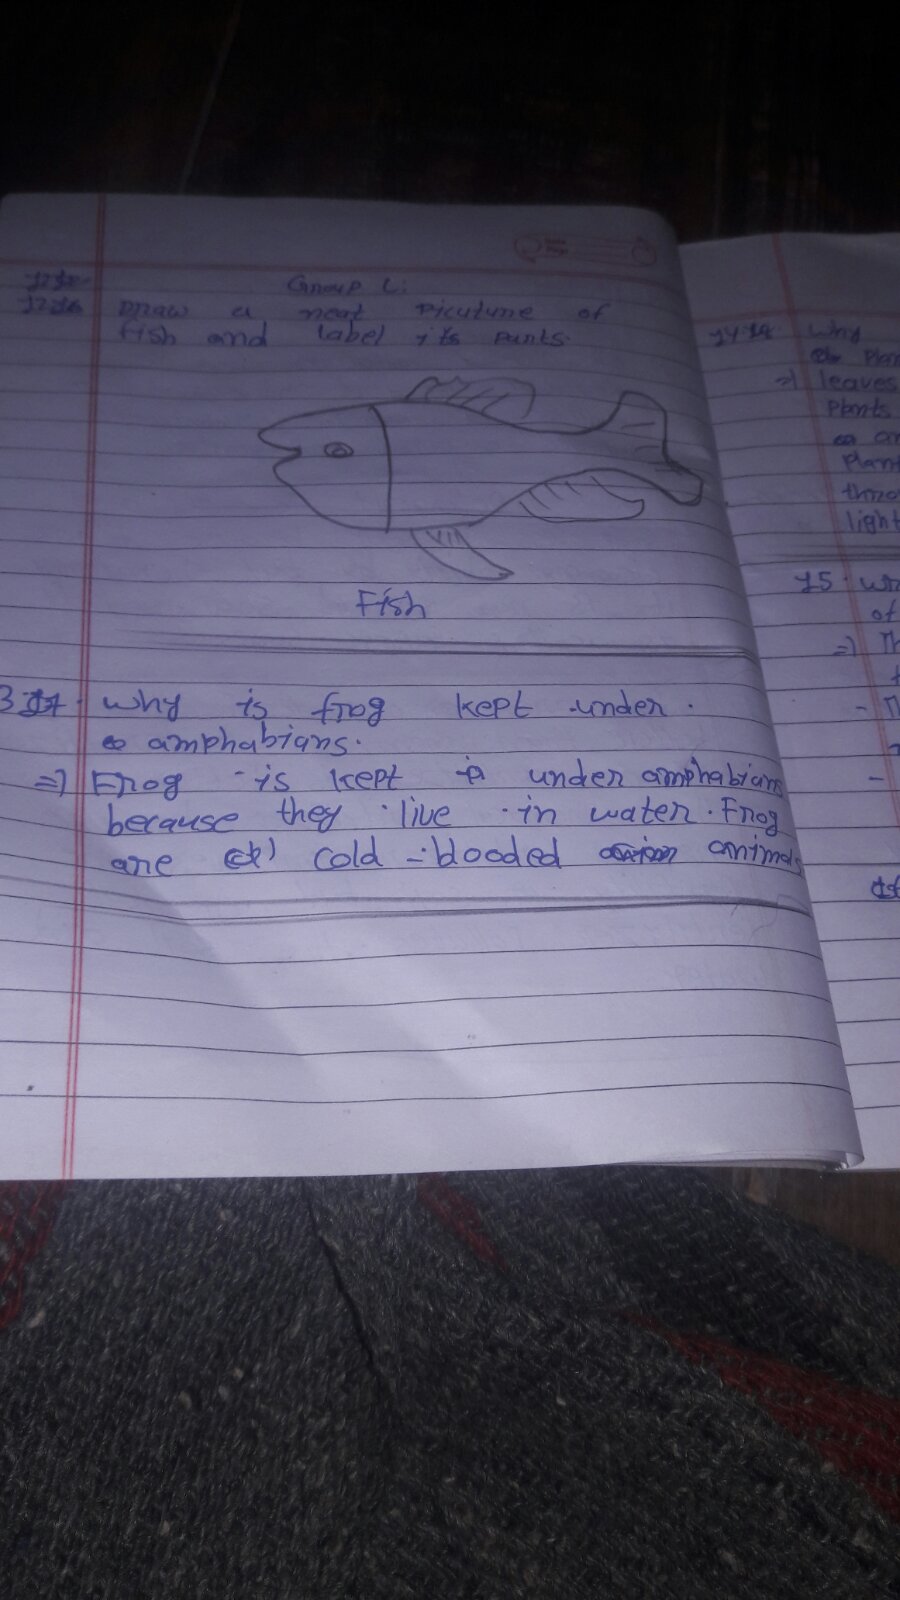 Group C:
Draw a neat picutune of
fish and label its parts.
Fish
Why is frog kept under.
amphabians.
=) Frog is kept under amphabians
because they live in water. Frog
are cold-blooded animals
14 Why
Plan
=) leaves
Plants
Plan
throu
light
15. Wh
of
=) Th